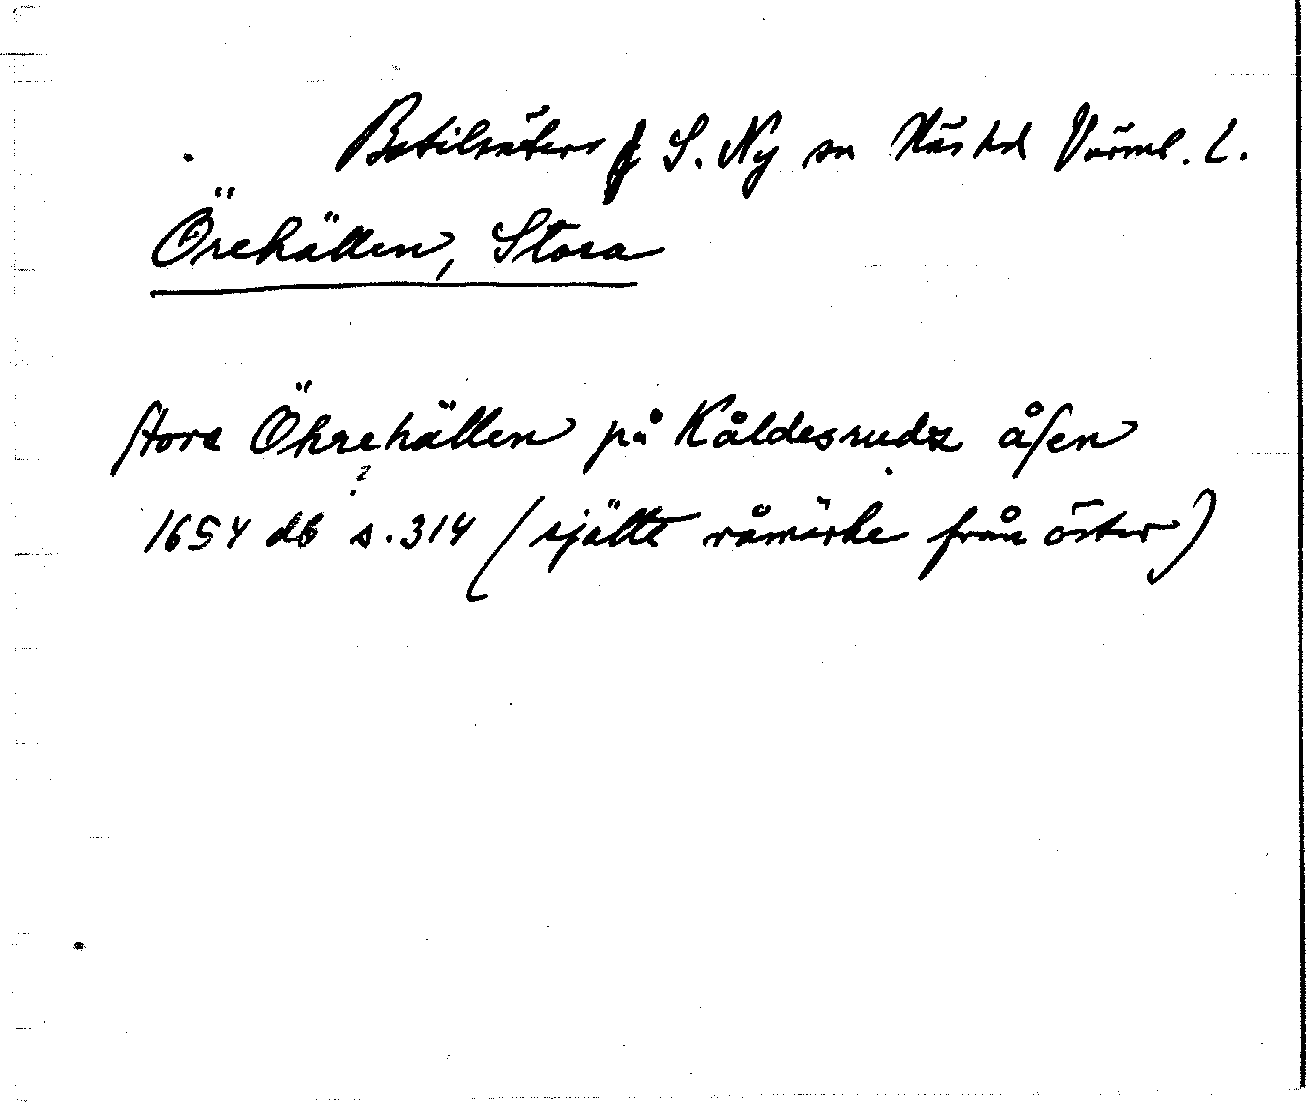 Botilsäters f S. Ny sn Näs hd Värml. L.
Örehällen, Stora
stora Öhrehällen på Kåldesrudz åsen
?
1654 db s. 314 (sjätte råmärke från öster)